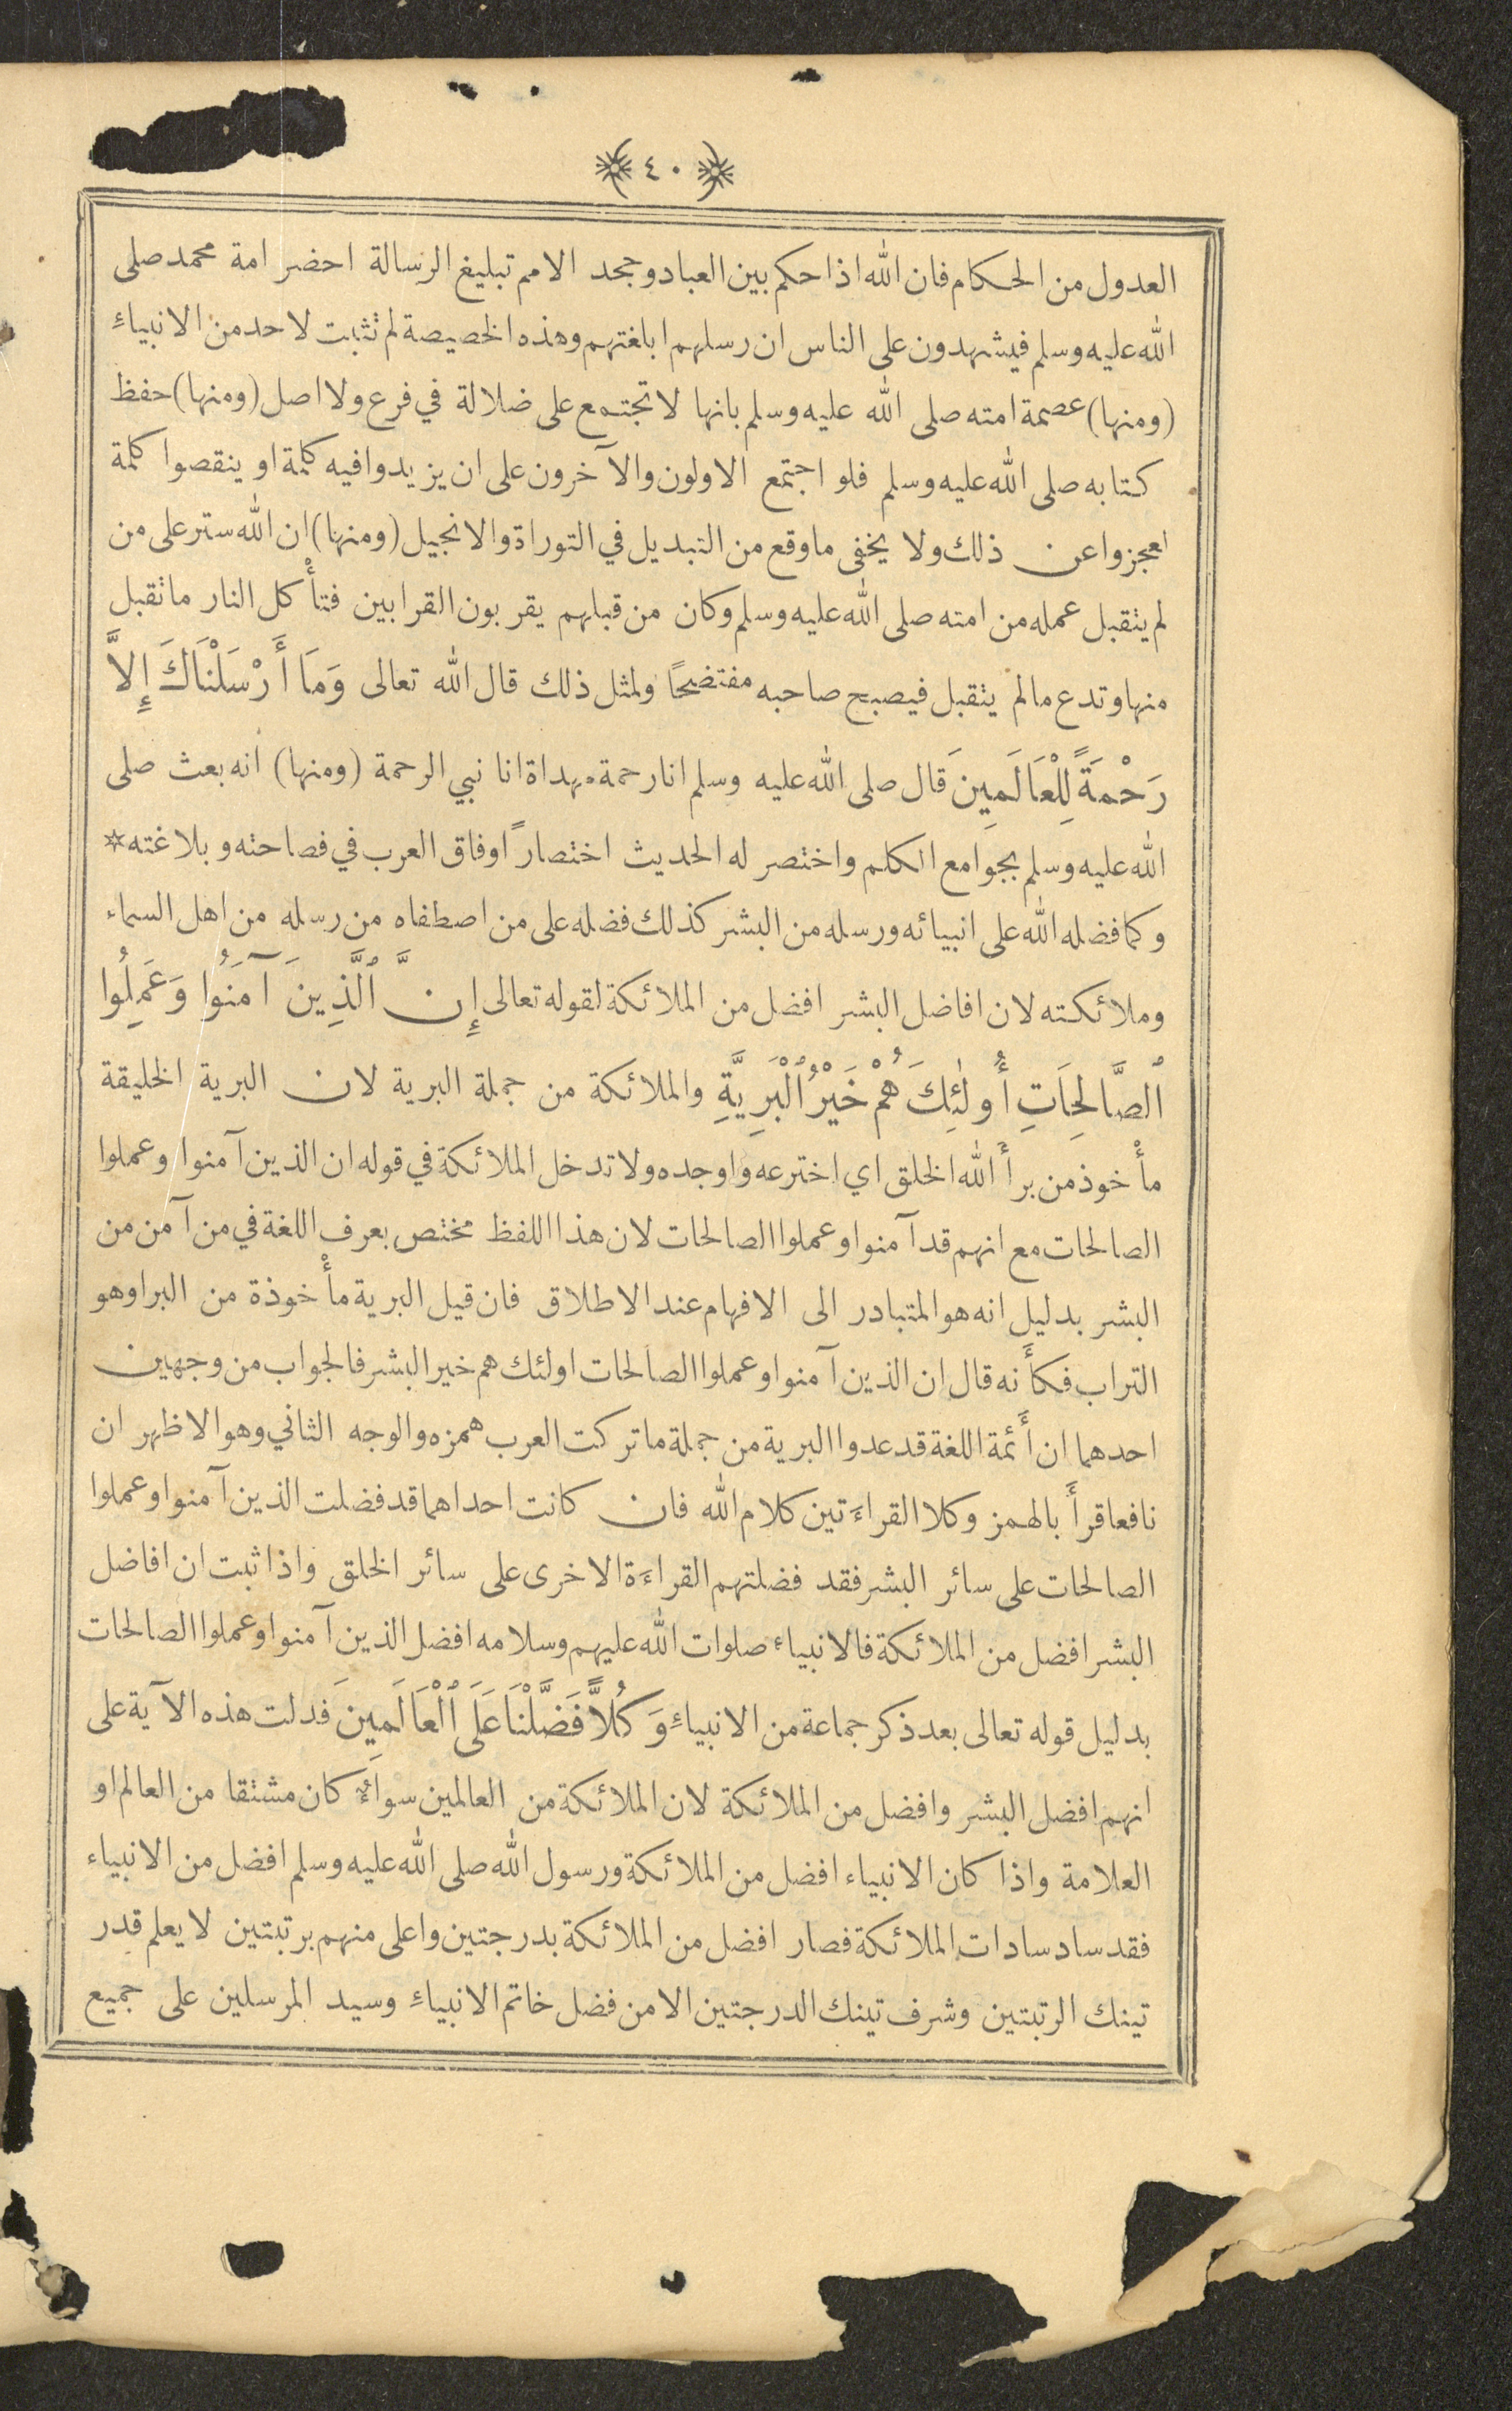 ٤٠
العدول من الحكام فان الله اذا حكم بين العباد وجحد الامم تبليغ الرسالة احضر امة محمد صلى
الله عليه وسلم فيشهدون على الناس ان رسلهم ابلغتهم وهذه الخصيصة لم تثبت لاحد من الانبياءِ
(ومنها) عصمة امته صلى الله عليه وسلم بانها لا تجتمع على ضلالة في فرع ولا اصل (ومنها) حفظ
كتابه صلى الله عليه وسلم فلو اجتمع الاولون والآخرون على ان يزيدوا فيه كلمة او ينقصوا كلمة
لعجزوا عن ذلك ولا يخفى ما وقع من التبديل في التوراة والانجيل (ومنها) ان الله ستر على من
لم يتقبل عمله من امته صلى الله عليه وسلم وكان من قبلهم يقربون القرابين فتأْكل النار ما تقبل
منها وتدع ما لم يتقبل فيصبح صاحبه مفتضحًا ولمثل ذلك قال الله تعالى وَمَا أَرْسَلْنَاكَ إِلاَّ
رَحْمَةً لِلْعَالَمِينَ قال صلى الله عليه وسلم انا رحمة مهداة انا نبي الرحمة (ومنها) انه بعث صلى
الله عليه وسلم بجوامع الكلم واختصر له الحديث اختصارًا وفاق العرب في فصاحته وبلاغته *
وكما فضله الله على انبيائه ورسله من البشر كذلك فضله على من اصطفاه من رسله من اهل السماء
وملائكته لان افاضل البشر افضل من الملائكة لقوله تعالى إِنَّ ٱلَّذِينَ آمَنُوا وَعَمِلُوا
ٱلصَّالِحَاتِ أُولٰئِكَ هُمْ خَيْرُ ٱلْبَرِيَّةِ والملائكة من جملة البرية لان البرية الخليقة
مأْخوذ من برأَ الله الخلق اي اخترعه واوجده ولا تدخل الملائكة في قوله ان الذين آمنوا وعملوا
الصالحات مع انهم قد آمنوا وعملوا الصالحات لان هذا اللفظ مختص بعرف اللغة في من آمن من
البشر بدليل انه هو المتبادر الى الافهام عند الاطلاق فان قيل البرية مأْخوذة من البرا وهو
التراب فكأَنه قال ان الذين آمنوا وعملوا الصالحات اولئك هم خير البشر فالجواب من وجهين
احدهما ان أَئمة اللغة قد عدوا البرية من جملة ما تركت العرب همزه والوجه الثاني وهو الاظهر ان
نافعا قرأَ بالهمز وكلا القراءَتين كلام الله فان كانت احداهما قد فضلت الذين آمنوا وعملوا
الصالحات على سائر البشر فقد فضلتهم القراءَة الاخرى على سائر الخلق واذا ثبت ان افاضل
البشر افضل من الملائكة فالانبياء صلوات الله عليهم وسلامه افضل الذين آمنوا وعملوا الصالحات
بدليل قوله تعالى بعد ذكر جماعة من الانبياءِ وَكُلاًّ فَضَّلْنَا عَلَى ٱلْعَالَمِينَ فدلت هذه الآية على
انهم افضل البشر وافضل من الملائكة لان الملائكة من العالمين سواءٌ كان مشتقا من العالم او
العلامة واذا كان الانبياء افضل من الملائكة ورسول الله صلى الله عليه وسلم افضل من الانبياء
فقد ساد سادات الملائكة فصار افضل من الملائكة بدرجتين واعلى منهم برتبتين لا يعلم قدر
تينك الرتبتين وشرف تينك الدرجتين الا من فضل خاتم الانبياءِ وسيد المرسلين على جميع